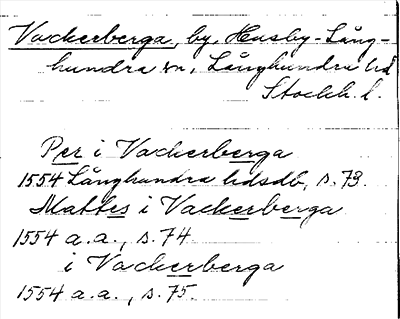 Vackerberga, by, Husby-Lång-
hundra sn, Långhundra hd
Stockh. l.
Per i Vackerberga
1554 Långhundra hdsdb, s. 73.
Mattes i Vackerberga
1554 a.a., s. 74
i Vackerberga
1554 a.a., s. 75.